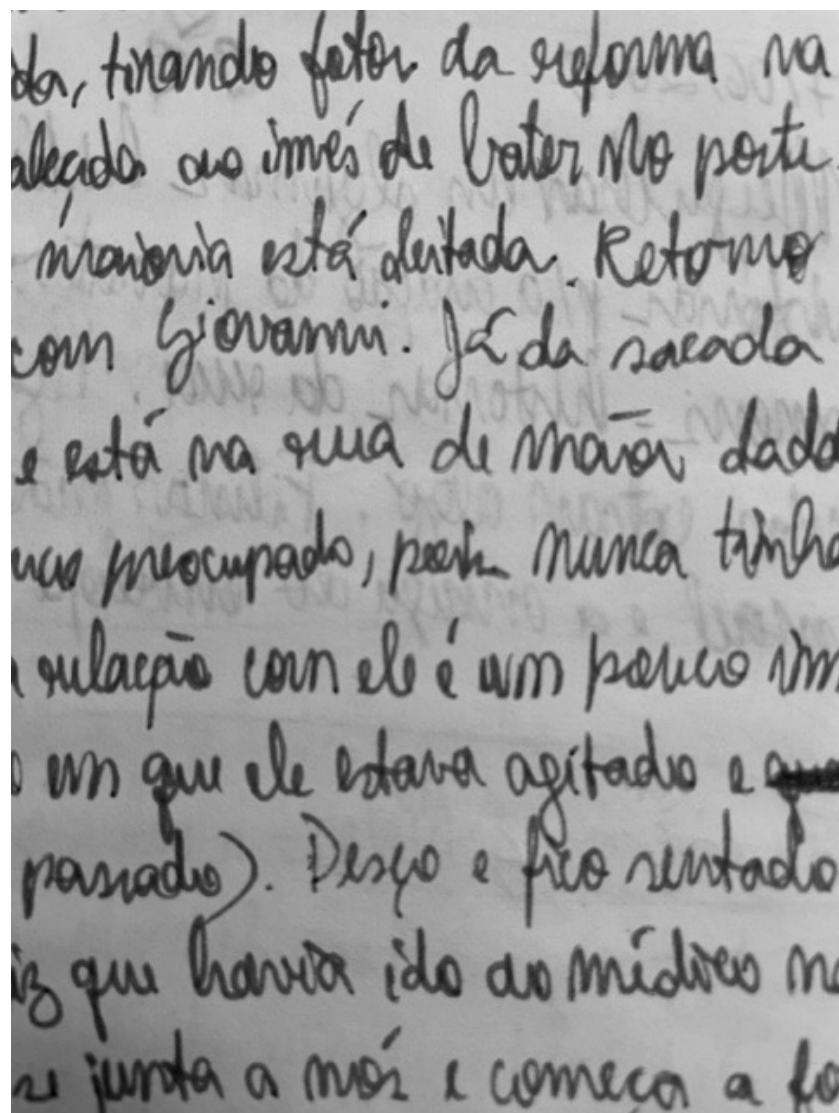 da, tirando fotor da reforma na
alçada ao invés de bater no
maioria está deitada. Retorno
com Giovanni. Já da sacada
e está na rua de mãos dada
preocupado, pois nunca tinha
relação com ele é um pouco im
em que ele estava agitado e
passado). Desço e fico sentado
iz que havia ido ao médico na
se junta a nós e começa a fo